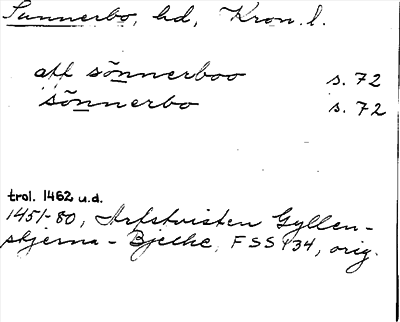 Sunnerbo, hd, Kron. l.
att sönnerboo s. 72
sönnerbo s. 72
trol. 1462 u.d.
1451-80, Arfstvisten Gyllen-
stjerna - Bjelke, FSS 134, orig.